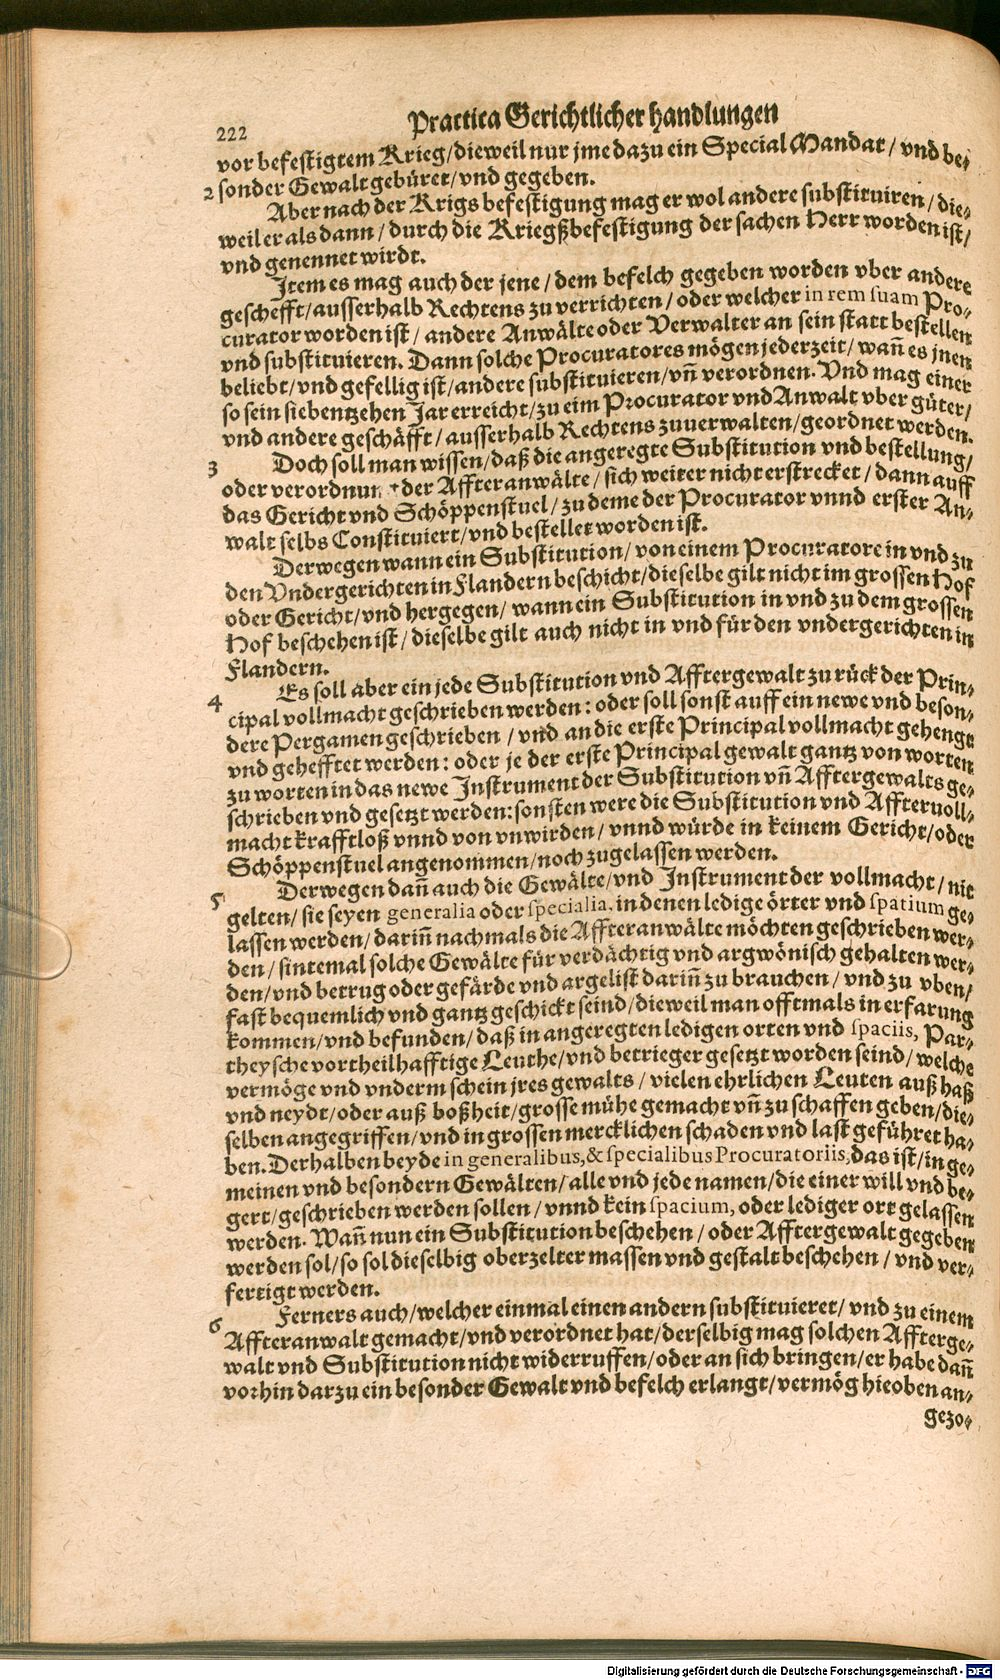 222
Practica Gerichtlicher handlungen
vor befestigtem Krieg/dieweil nur jme dazu ein Special Mandat/vnd be-
2 sonder Gewalt gebüret/vnd gegeben.
Aber nach der Krigs befestigung mag er wol andere substituiren/die-
weil er als dann/durch die Kriegßbefestigung der sachen Herr worden ist/
vnd genennet wirdt.
Item es mag auch der jene/dem befelch gegeben worden vber andere
geschefft/ausserhalb Rechtens zu verrichten/oder welcher in rem suam Pro-
curator worden ist/andere Anwälte oder Verwalter an sein statt bestellen
vnd substituieren. Dann solche Procuratores mögen jederzeit/wañ es jnen
beliebt/vnd gefellig ist/andere substituieren/vñ verordnen. Vnd mag einer
so sein siebentzehen Jar erreicht/zu eim Procurator vnd Anwalt vber güter/
vnd andere geschäfft/ausserhalb Rechtens zuuerwalten/geordnet werden.
3 Doch soll man wissen/daß die angeregte Substitution vnd bestellung/
oder verordnun der Affteranwälte/sich weiter nicht erstrecket/dann auff
das Gericht vnd Schöppenstuel/zu deme der Procurator vnnd erster An-
walt selbs Constituiert/vnd bestellet worden ist.
Derwegen wann ein Substitution/von einem Procuratore in vnd zu
den Vndergerichten in Flandern beschicht/dieselbe gilt nicht im grossen Hof
oder Gericht/vnd hergegen/wann ein Substitution in vnd zu dem grossen
Hof beschehen ist/dieselbe gilt auch nicht in vnd für den vndergerichten in
Flandern.
4 Es soll aber ein jede Substitution vnd Afftergewalt zu rück der Prin-
cipal vollmacht geschrieben werden: oder soll sonst auff ein newe vnd beson-
dere Pergamen geschrieben/vnd an die erste Principal vollmacht gehengt
vnd gehefftet werden: oder je der erste Principal gewalt gantz von worten
zu worten in das newe Instrument der Substitution vñ Afftergewalts ge-
schrieben vnd gesetzt werden: sonsten were die Substitution vnd Afftervoll-
macht krafftloß vnnd von vnwirden/vnnd würde in keinem Gericht/oder
Schöppenstuel angenommen/noch zugelassen werden.
5 Derwegen dañ auch die Gewälte/vnd Instrument der vollmacht/nit
gelten/sie seyen generalia oder specialia, in denen ledige örter vnd spatium ge-
lassen werden/dariñ nachmals die Affteranwälte möchten geschrieben wer-
den/sintemal solche Gewälte für verdächtig vnd argwönisch gehalten wer-
den/vnd betrug oder gefärde vnd argelist dariñ zu brauchen/vnd zu vben/
fast bequemlich vnd gantz geschickt seind/dieweil man offtmals in erfarung
kommen/vnd befunden/daß in angeregten ledigen orten vnd spaciis, Par-
theysche vortheilhafftige Leuthe/vnd betrieger gesetzt worden seind/welche
vermöge vnd vnderm schein jres gewalts/vielen ehrlichen Leuten auß haß
vnd neydt/oder auß boßheit/grosse mühe gemacht vñ zu schaffen geben/die-
selben angegriffen/vnd in grossen mercklichen schaden vnd last geführet ha-
ben. Derhalben beyde in generalibus, & specialibus Procuratoriis, das ist/in ge-
meinen vnd besondern Gewälten/alle vnd jede namen/die einer will vnd be-
gert/geschrieben werden sollen/vnnd kein spacium, oder lediger ort gelassen
werden. Wañ nun ein Substitution beschehen/oder Afftergewalt gegeben
werden sol/so sol dieselbig oberzelter massen vnd gestalt beschehen/vnd ver-
fertigt werden.
6 Ferners auch/welcher einmal einen andern substituieret/vnd zu einem
Affteranwalt gemacht/vnd verordnet hat/derselbig mag solchen Affterge-
walt vnd Substitution nicht widerruffen/oder an sich bringen/er habe dañ
vorhin darzu ein besonder Gewalt vnd befelch erlangt/vermög hieoben an-
gezo-
Digitalisierung gefördert durch die Deutsche Forschungsgemeinschaft - DFG